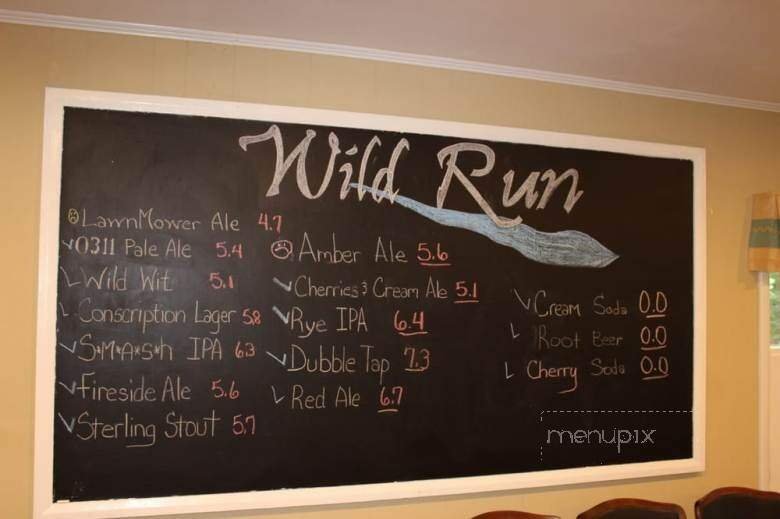 Wild Run
LawnMower Ale 4.7
0311 Pale Ale 5.4
Wild Wit 5.1
Conscription Lager 5.8
S*M*A*S*h IPA 6.3
Fireside Ale 5.6
Sterling Stout 5.7
Amber Ale 5.6
Cherries & Cream Ale 5.1
Rye IPA 6.4
Dubble Tap 7.3
Red Ale 6.7
Cream Soda 0.0
Root Beer 0.0
Cherry Soda 0.0
menupix